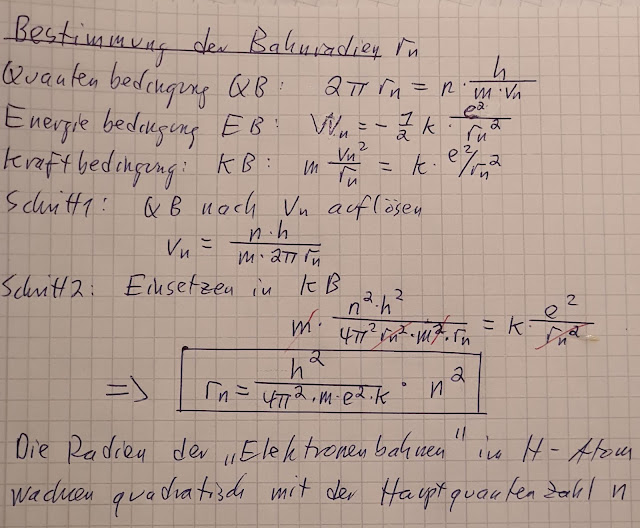 Bestimmung der Bahnradien rₙ
Quantenbedingung QB: 2π rₙ = n · h / (m · vₙ)
Energiebedingung EB: Wₙ = - 1/2 k · e² / rₙ²
Kraftbedingung: KB: m vₙ² / rₙ = k · e²/rₙ²
Schritt 1: QB nach vₙ auflösen
vₙ = n · h / (m · 2π rₙ)
Schritt 2: Einsetzen in KB
m · n² · h² / (4π² rₙ² · m² · rₙ) = k · e² / rₙ²
=> rₙ = h² / (4π² · m · e² · k) · n²
Die Radien der „Elektronenbahnen" in H-Atom
wachsen quadratisch mit der Hauptquantenzahl n